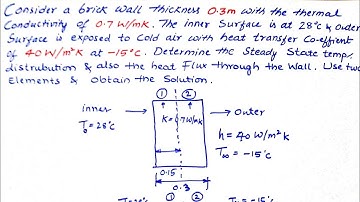 Consider a brick wall thickness 0.3m with the thermal
Conductivity of 0.7 W/mK. The inner Surface is at 28°c & outer
Surface is exposed to Cold air with heat transfer Co-effient
of 40 W/m²K at -15°c. Determine the Steady State temp.
distrubution & also the heat Flux through the Wall. Use two
Elements & Obtain the Solution.
① ②
inner → Outer
K=0.7W/mK
T₀=28°c
h=40W/m²k
T∞=-15°c
0.15
0.3
① ②